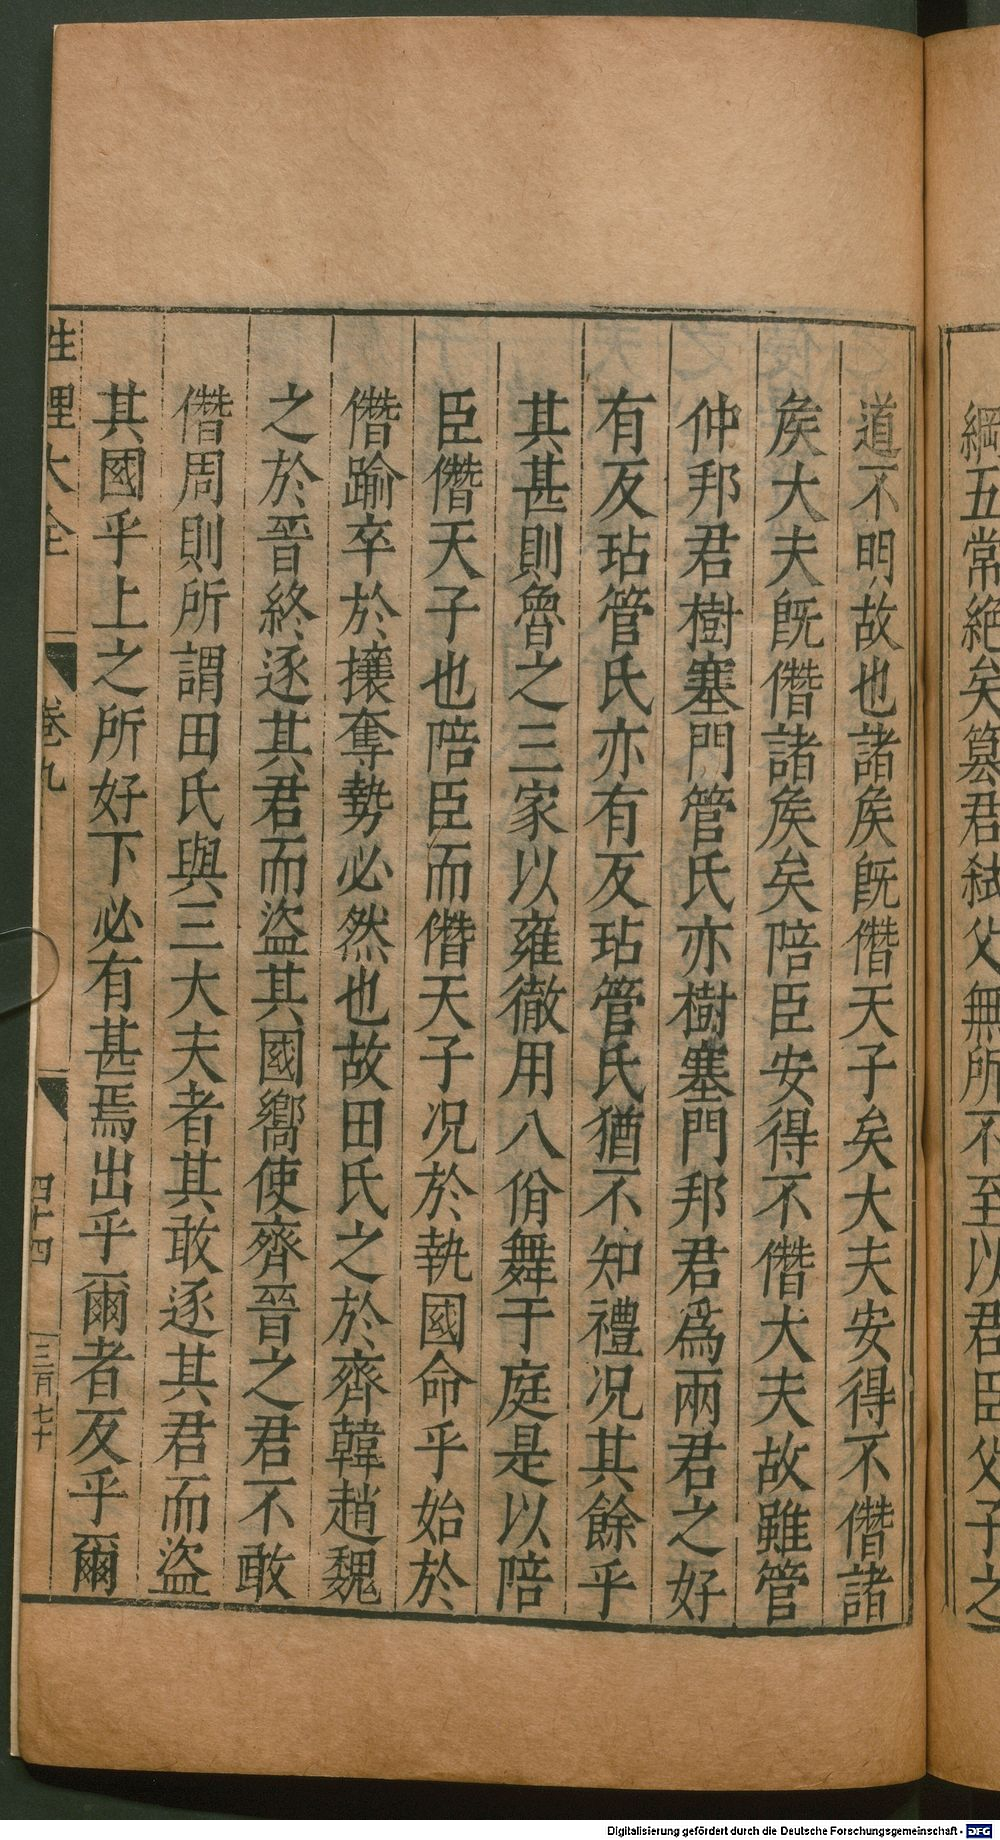 綱五常絶矣篡君弑父無所不至以君臣父子之
道不明故也諸矦旣僭天子矣大夫安得不僭諸
矦大夫旣僭諸矦矣陪臣安得不僭大夫故雖管
仲邦君樹塞門管氏亦樹塞門邦君爲兩君之好
有反玷管氏亦有反玷管氏猶不知禮况其餘乎
其甚則魯之三家以雍徹用八佾舞于庭是以陪
臣僭天子也陪臣而僭天子况於執國命乎始於
僭踰卒於攘奪勢必然也故田氏之於齊韓趙魏
之於晉終逐其君而盜其國嚮使齊晉之君不敢
僭周則所謂田氏與三大夫者其敢逐其君而盜
其國乎上之所好下必有甚焉出乎爾者反乎爾
性理大全 卷九 四十四 三百七十
Digitalisierung gefördert durch die Deutsche Forschungsgemeinschaft - DFG